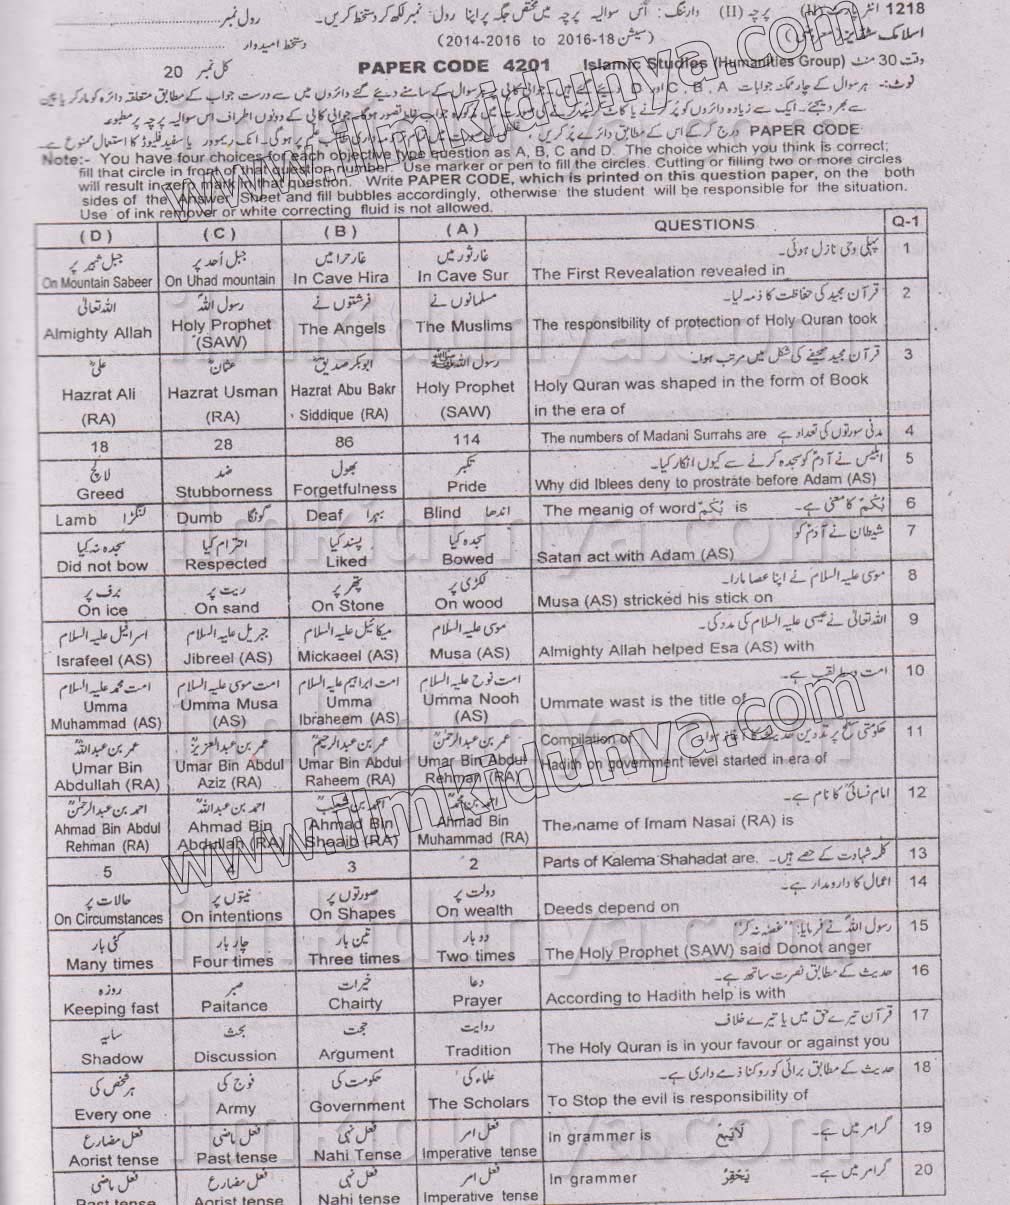 1218 انٹر پارٹ (II) پرچہ (II) وارننگ:۔ اس سوالیہ پرچہ میں مختص جگہ پر اپنا رول نمبر لکھ کر دستخط کریں۔ رول نمبر
اسلامک سٹڈیز (سیشن 18-2016 to 2014-2016) دستخط امیدوار
وقت 30 منٹ Islamic Studies (Humanities Group) PAPER CODE 4201 کل نمبر 20
نوٹ:۔ ہر سوال کے چار ممکنہ جوابات A ، B ، C اور D دیئے گئے ہیں۔ جوابی کاپی پر ہر سوال کے سامنے دیئے گئے دائروں میں سے درست جواب کے مطابق متعلقہ دائرہ کو مارکر یا پین
سے بھر دیجئے۔ ایک سے زیادہ دائروں کو پُر کرنے یا کاٹ کر پُر کرنے کی صورت میں مذکورہ جواب غلط تصور ہوگا۔ جوابی کاپی کے دونوں اطراف اس سوالیہ پرچہ پر مطبوعہ
PAPER CODE درج کر کے اس کے مطابق دائرے پُر کریں، ذمہ داری طالب علم پر ہوگی۔ انک ریموور یا سفید فلیوڈ کا استعمال ممنوع ہے۔
Note:- You have four choices for each objective type question as A, B, C and D. The choice which you think is correct;
fill that circle in front of that question number. Use marker or pen to fill the circles. Cutting or filling two or more circles
will result in zero mark in that question. Write PAPER CODE, which is printed on this question paper, on the both
sides of the Answer Sheet and fill bubbles accordingly, otherwise the student will be responsible for the situation.
Use of ink remover or white correcting fluid is not allowed.
( D ) ( C ) ( B ) ( A ) QUESTIONS Q-1
جبل شبیر پر جبل اُحد پر غار حرا میں غار ثور میں پہلی وحی نازل ہوئی۔ 1
On Mountain Sabeer On Uhad mountain In Cave Hira In Cave Sur The First Revealation revealed in
اللہ تعالیٰ رسول اللہؐ فرشتوں نے مسلمانوں نے قرآن مجید کی حفاظت کا ذمہ لیا۔ 2
Almighty Allah Holy Prophet (SAW) The Angels The Muslims The responsibility of protection of Holy Quran took
علیؓ عثمانؓ ابوبکر صدیقؓ رسول اللہ ﷺ قرآن مجید صحیفے کی شکل میں مرتب ہوا۔ 3
Hazrat Ali (RA) Hazrat Usman (RA) Hazrat Abu Bakr Siddique (RA) Holy Prophet (SAW) Holy Quran was shaped in the form of Book in the era of
18 28 86 114 The numbers of Madani Surrahs are مدنی سورتوں کی تعداد ہے 4
لالچ ضد بھول تکبر ابلیس نے آدمؑ کو سجدہ کرنے سے کیوں انکار کیا۔ 5
Greed Stubborness Forgetfulness Pride Why did Iblees deny to prostrate before Adam (AS)
Lamb لنگڑا Dumb گونگا Deaf بہرا Blind اندھا The meanig of word بُكْمٌ is بُكْمٌ کا معنی ہے۔ 6
سجدہ نہ کیا احترام کیا پسند کیا سجدہ کیا شیطان نے آدمؑ کو 7
Did not bow Respected Liked Bowed Satan act with Adam (AS)
برف پر ریت پر پتھر پر لکڑی پر موسیٰ علیہ السلام نے اپنا عصا مارا۔ 8
On ice On sand On Stone On wood Musa (AS) stricked his stick on
اسرافیل علیہ السلام جبریل علیہ السلام میکائیل علیہ السلام موسیٰ علیہ السلام اللہ تعالیٰ نے عیسیٰ علیہ السلام کی مدد کی۔ 9
Israfeel (AS) Jibreel (AS) Mickaeel (AS) Musa (AS) Almighty Allah helped Esa (AS) with
امت محمد علیہ السلام امت موسیٰ علیہ السلام امت ابراہیم علیہ السلام امت نوح علیہ السلام امت وسط لقب ہے۔ 10
Umma Muhammad (AS) Umma Musa (AS) Umma Ibraheem (AS) Umma Nooh (AS) Ummate wast is the title of
عمر بن عبداللہؓ عمر بن عبدالعزیزؒ عمر بن عبدالرحیمؒ عمر بن عبدالرحمٰنؒ حکومتی سطح پر تدوین حدیث کا آغاز ہوا 11
Umar Bin Abdullah (RA) Umar Bin Abdul Aziz (RA) Umar Bin Abdul Raheem (RA) Umar Bin Abdul Rehman (RA) Compilation of Hadith on government level started in era of
احمد بن عبدالرحمٰنؒ احمد بن عبداللہؒ احمد بن شعیبؒ احمد بن محمدؒ امام نسائیؒ کا نام ہے۔ 12
Ahmad Bin Abdul Rehman (RA) Ahmad Bin Abdullah (RA) Ahmad Bin Shoaib (RA) Ahmad Bin Muhammad (RA) The name of Imam Nasai (RA) is
5 4 3 2 Parts of Kalema Shahadat are. کلمہ شہادت کے حصے ہیں۔ 13
حالات پر نیتوں پر صورتوں پر دولت پر اعمال کا دارومدار ہے۔ 14
On Circumstances On intentions On Shapes On wealth Deeds depend on
کئی بار چار بار تین بار دو بار رسول اللہؐ نے فرمایا: "غصہ نہ کر" 15
Many times Four times Three times Two times The Holy Prophet (SAW) said Donot anger
روزہ صبر خیرات دعا حدیث کے مطابق نصرت ساتھ ہے۔ 16
Keeping fast Paitance Chairty Prayer According to Hadith help is with
سایہ بحث حجت روایت قرآن تیرے حق میں یا تیرے خلاف 17
Shadow Discussion Argument Tradition The Holy Quran is in your favour or against you
ہر شخص کی فوج کی حکومت کی علماء کی حدیث کے مطابق برائی کو روکنا ذمے داری ہے۔ 18
Every one Army Government The Scholars To Stop the evil is responsibility of
فعل مضارع فعل ماضی فعل نہی فعل امر گرامر میں ہے۔ 19
Aorist tense Past tense Nahi Tense Imperative tense In grammer is لَا تَبِعْ
فعل ماضی فعل مضارع فعل نہی فعل امر گرامر میں ہے۔ 20
Past tense Aorist tense Nahi tense Imperative tense In grammer يَحْقِرُ
www.ilmkidunya.com
www.ilmkidunya.com
ilmkidunya.com
ilmkidunya.com
ilmkidunya.com
ilmkidunya.com
ilmkidunya.com